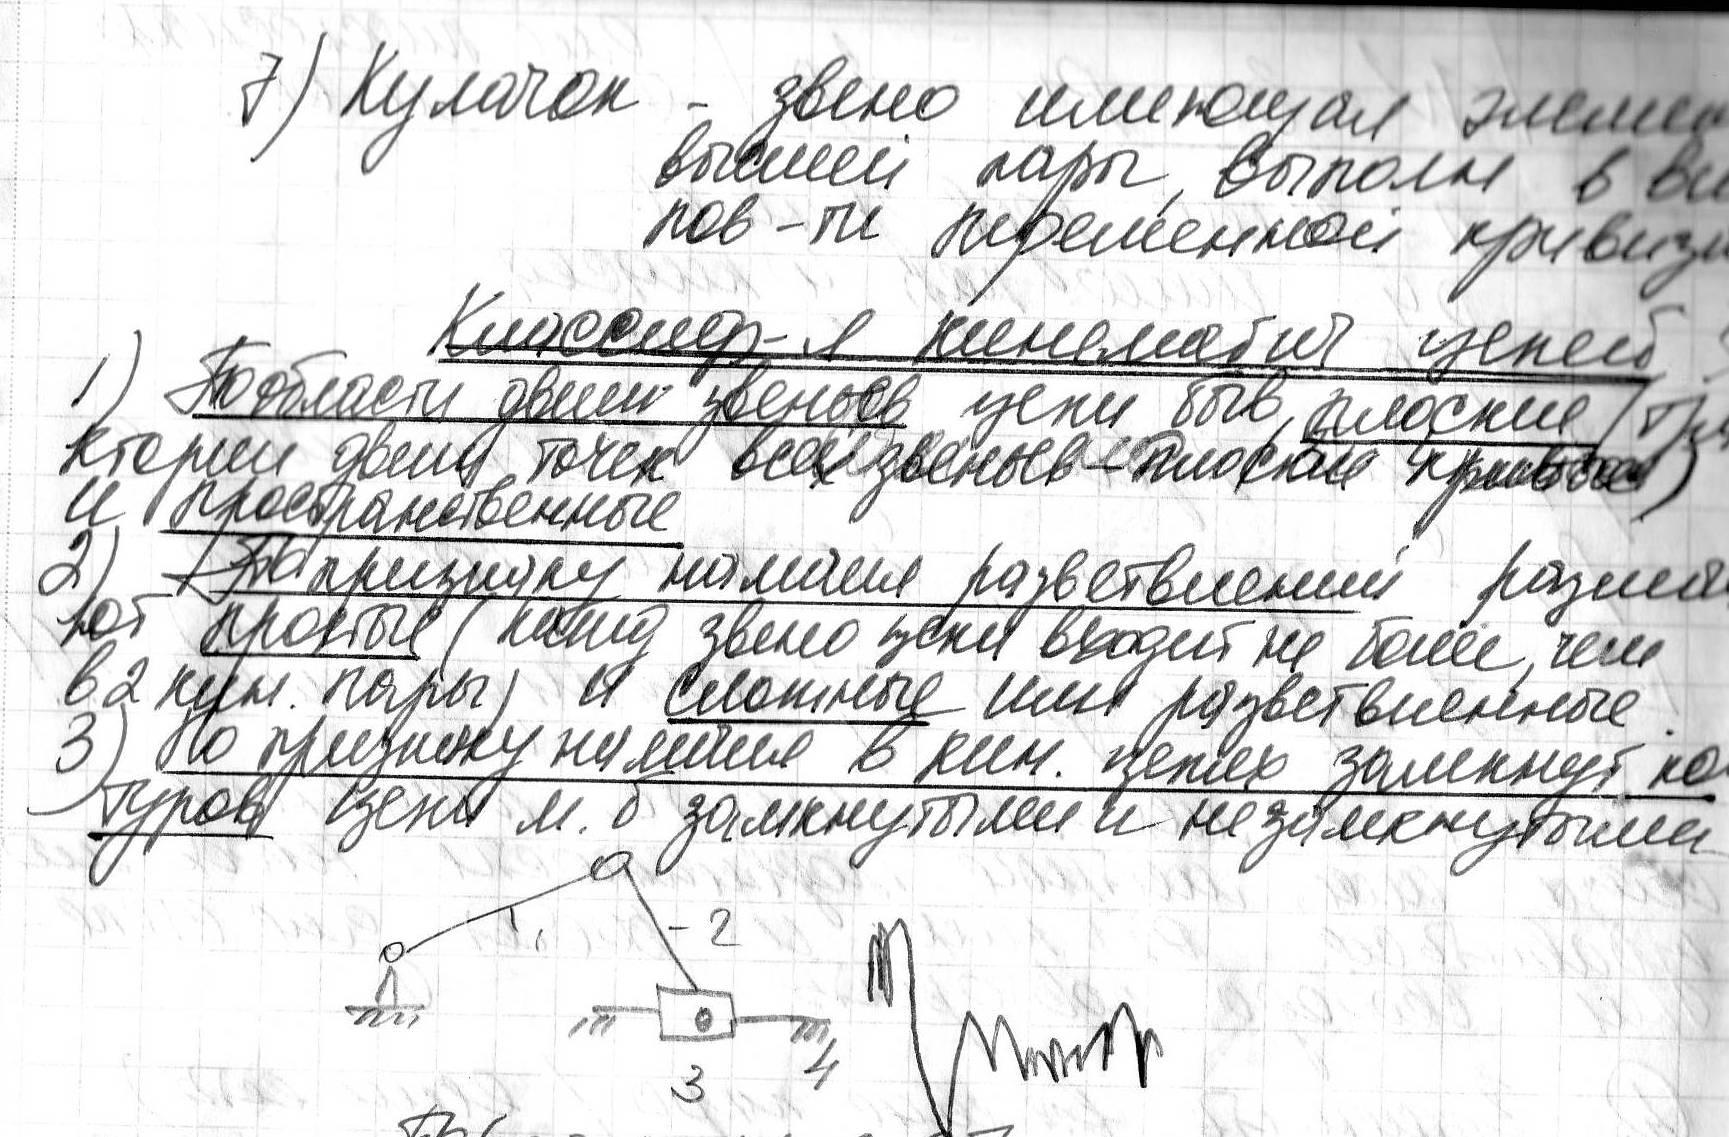 7) Кулачок - звено имеющая элемен
высшей пары, выполн в ви
пов-ти переменной кривизн
Классиф-я кинематич цепей
1) По области движ звеньев цепи быв, плоские (тра
ктории движ точек всех звеньев - плоские кривые)
и пространственные
2) По признаку наличия разветвлений различа
ют простые (кажд звено цепи входит не более, чем
в 2 кин. пары) и сложные или разветвленные.
3) По признаку наличия в кин. цепях замкнут ко
туров цепи м. б замкнутыми и незамкнутыми
1
2
3
4